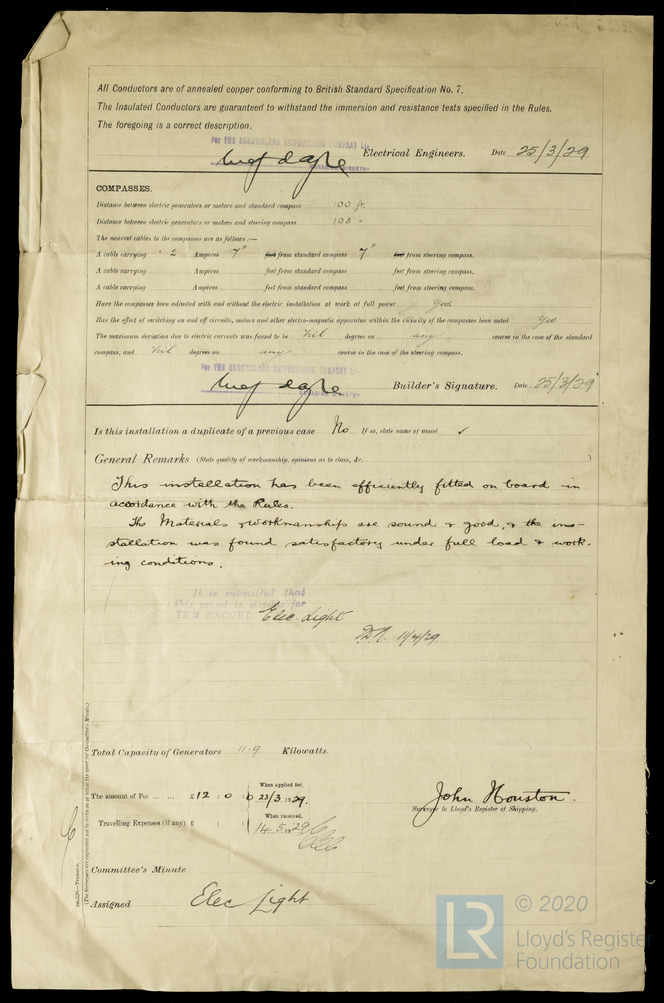 All Conductors are of annealed copper conforming to British Standard Specification No. 7.
The Insulated Conductors are guaranteed to withstand the immersion and resistance tests specified in the Rules.
The foregoing is a correct description.
For THE SUNDERLAND SHIPBUILDING COMPANY Ld.
Electrical Engineers. Date 25/3/29
COMPASSES.
Distance between electric generators or motors and standard compass 100 ft.
Distance between electric generators or motors and steering compass 103 "
The nearest cables to the compasses are as follows:—
A cable carrying .2 Ampères 7" feet from standard compass 7" feet from steering compass.
A cable carrying Ampères feet from standard compass feet from steering compass.
A cable carrying Ampères feet from standard compass feet from steering compass.
Have the compasses been adjusted with and without the electric installation at work at full power Yes
Has the effect of switching on and off circuits, motors and other electro-magnetic apparatus within the vicinity of the compasses been noted Yes
The maximum deviation due to electric currents was found to be Nil degrees on any course in the case of the standard
compass, and Nil degrees on any course in the case of the steering compass.
For THE SUNDERLAND SHIPBUILDING COMPANY Ld.
Builder's Signature. Date 25/3/29
Is this installation a duplicate of a previous case No If so, state name of vessel ✓
General Remarks (State quality of workmanship, opinions as to class, &c. )
This installation has been efficiently fitted on board in
accordance with the Rules.
The Materials & Workmanship are sound & good, & the in-
stallation was found satisfactory under full load & work-
ing conditions.
It is submitted that
this vessel is eligible for
THE RECORD Elec. Light
11/4/29
Total Capacity of Generators 11.9 Kilowatts.
The amount of Fee ... ... £12 : 0 : 0
When applied for,
23/3 1929.
Travelling Expenses (if any) £ : :
When received,
14.5.1929
John Houston.
Surveyor to Lloyd's Register of Shipping.
Committee's Minute
Assigned Elec Light
(The Surveyors are requested not to write on or below the space for Committee's Minute.)
LR © 2020
Lloyd's Register
Foundation